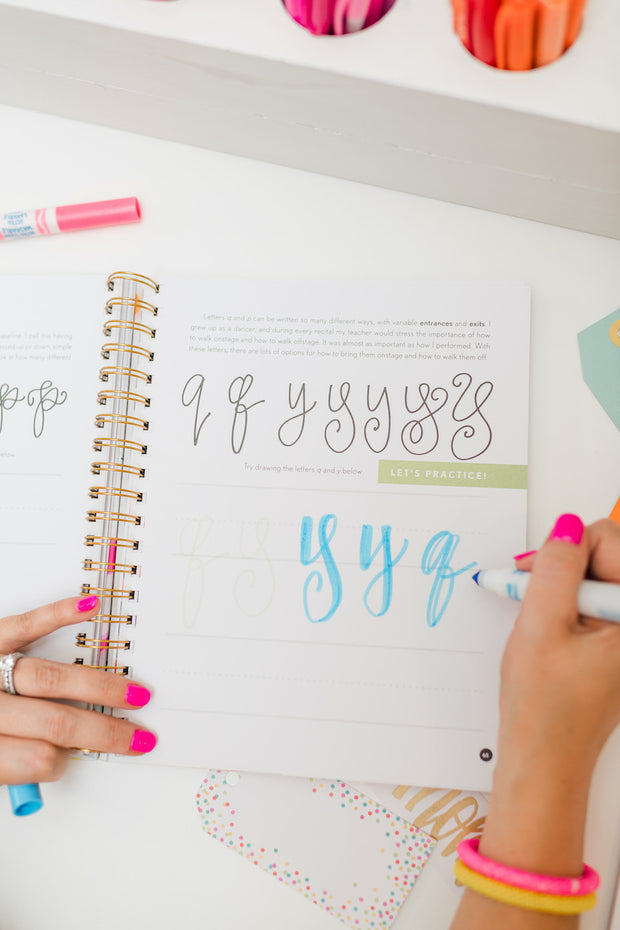 I call this having
or down, simple
at how many different
p p
below
Letters q and p can be written so many different ways, with variable entrances and exits. I
grew up as a dancer, and during every recital my teacher would stress the importance of how
to walk onstage and how to walk offstage. It was almost as important as how I performed. With
these letters, there are lots of options for how to bring them onstage and how to walk them off.
q q y y y y y
Try drawing the letters q and y below
LET'S PRACTICE!
q y y y q